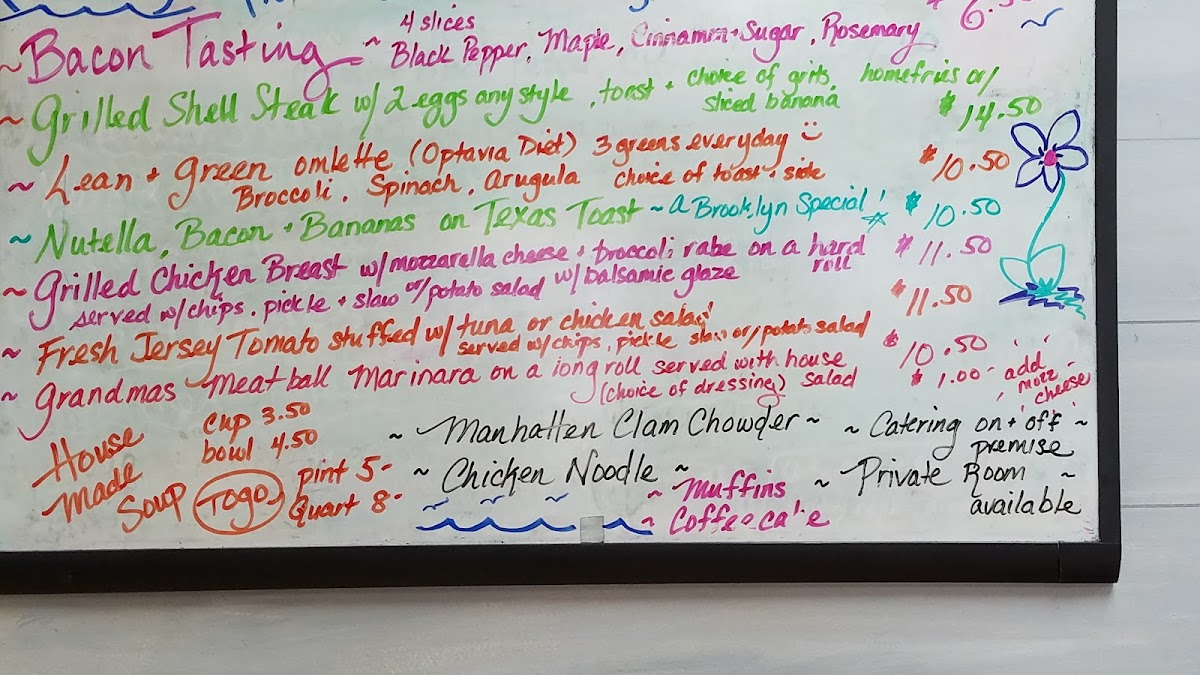 ~ Bacon Tasting ~ 4 slices
Black Pepper, Maple, Cinnamon+Sugar, Rosemary
~ Grilled Shell Steak w/ 2 eggs any style, toast + choice of grits, homefries or/
sliced banana $14.50
~ Lean + Green omlette (Optavia Diet) 3 greens everyday
Broccoli, Spinach, Arugula choice of toast + side $10.50
~ Nutella, Bacon + Bananas on Texas Toast ~ a Brooklyn Special! $10.50
~ Grilled Chicken Breast w/mozzarella cheese + broccoli rabe on a hard roll $11.50
served w/chips, pickle + slaw or/potato salad w/balsamic glaze
~ Fresh Jersey Tomato stuffed w/ tuna or chicken salad! $11.50
served w/chips, pickle slaw or/potato salad
~ Grandmas Meatball Marinara on a long roll served with house $10.50
(choice of dressing) salad $1.00 - add mozz cheese
House Made Soup
cup 3.50
bowl 4.50
Togo
pint 5-
Quart 8-
~ Manhatten Clam Chowder ~
~ Chicken Noodle ~
~ Muffins
~ Coffeecake
~ Catering on + off ~
premise
~ Private Room ~
available